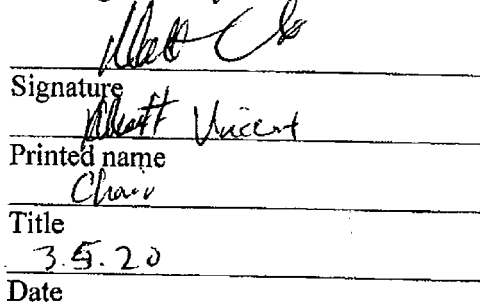 Matt
Signature
Matt Vincent
Printed name
Chair
Title
3.5.20
Date